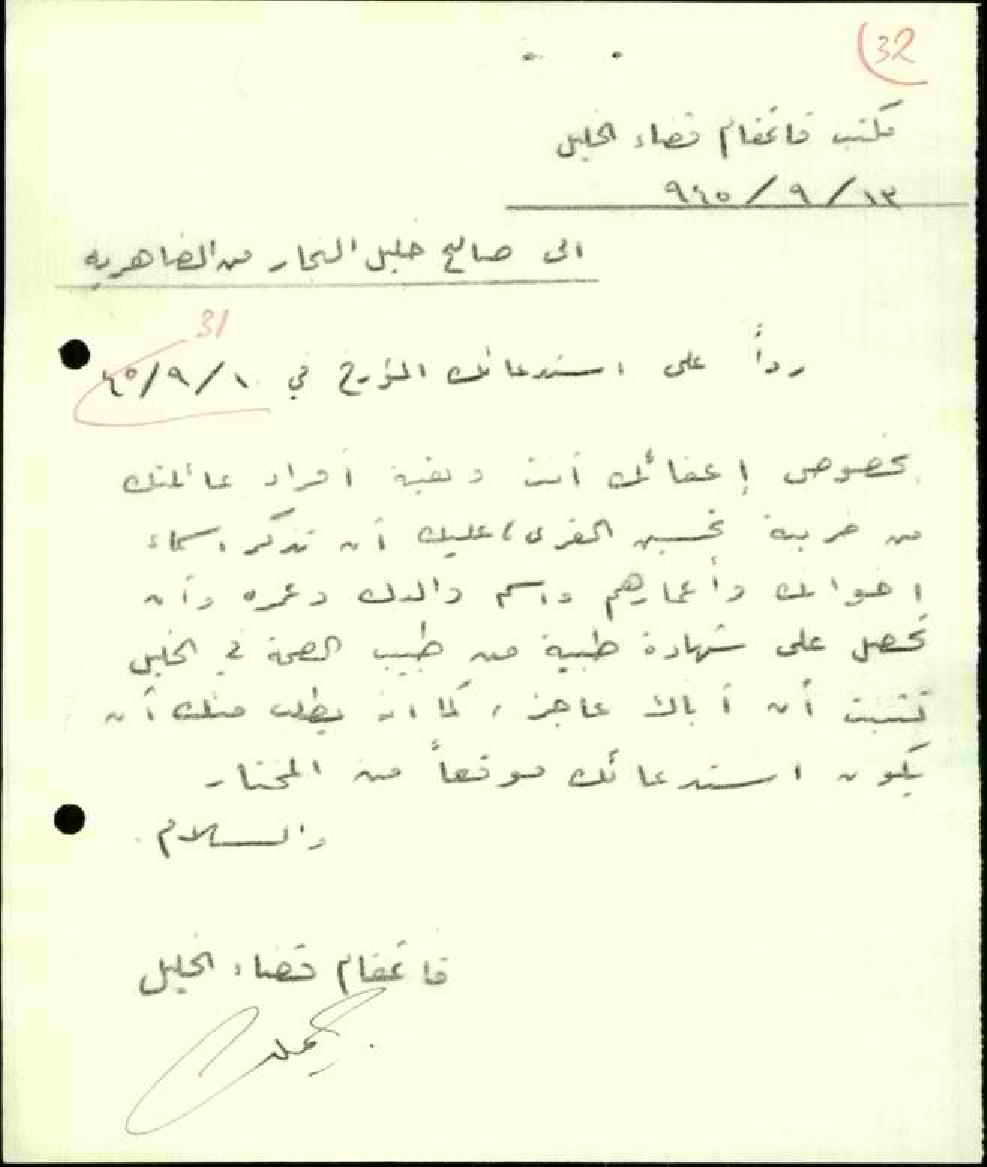 32
مكتب قائمقام قضاء الخليل
١٣ / ٩ / ٩٤٥
الى صالح خليل النجار من الضاهريه
31
رداً على استدعائك المؤرخ في ١٠/٩/٤٥
بخصوص إعفائك أنت وبقية أفراد عائلتك
من ضريبة تحسين القرى، عليك أن تذكر اسماء
اخوانك وأعمارهم واسم والدك وعمره وأن
تحصل على شهادة طبية من طبيب الصحة في الخليل
تثبت أن أباك عاجز، كما انه يطلب منك أن
يكون استدعائك موقعاً من المختار
والسلام.
قائمقام قضاء الخليل